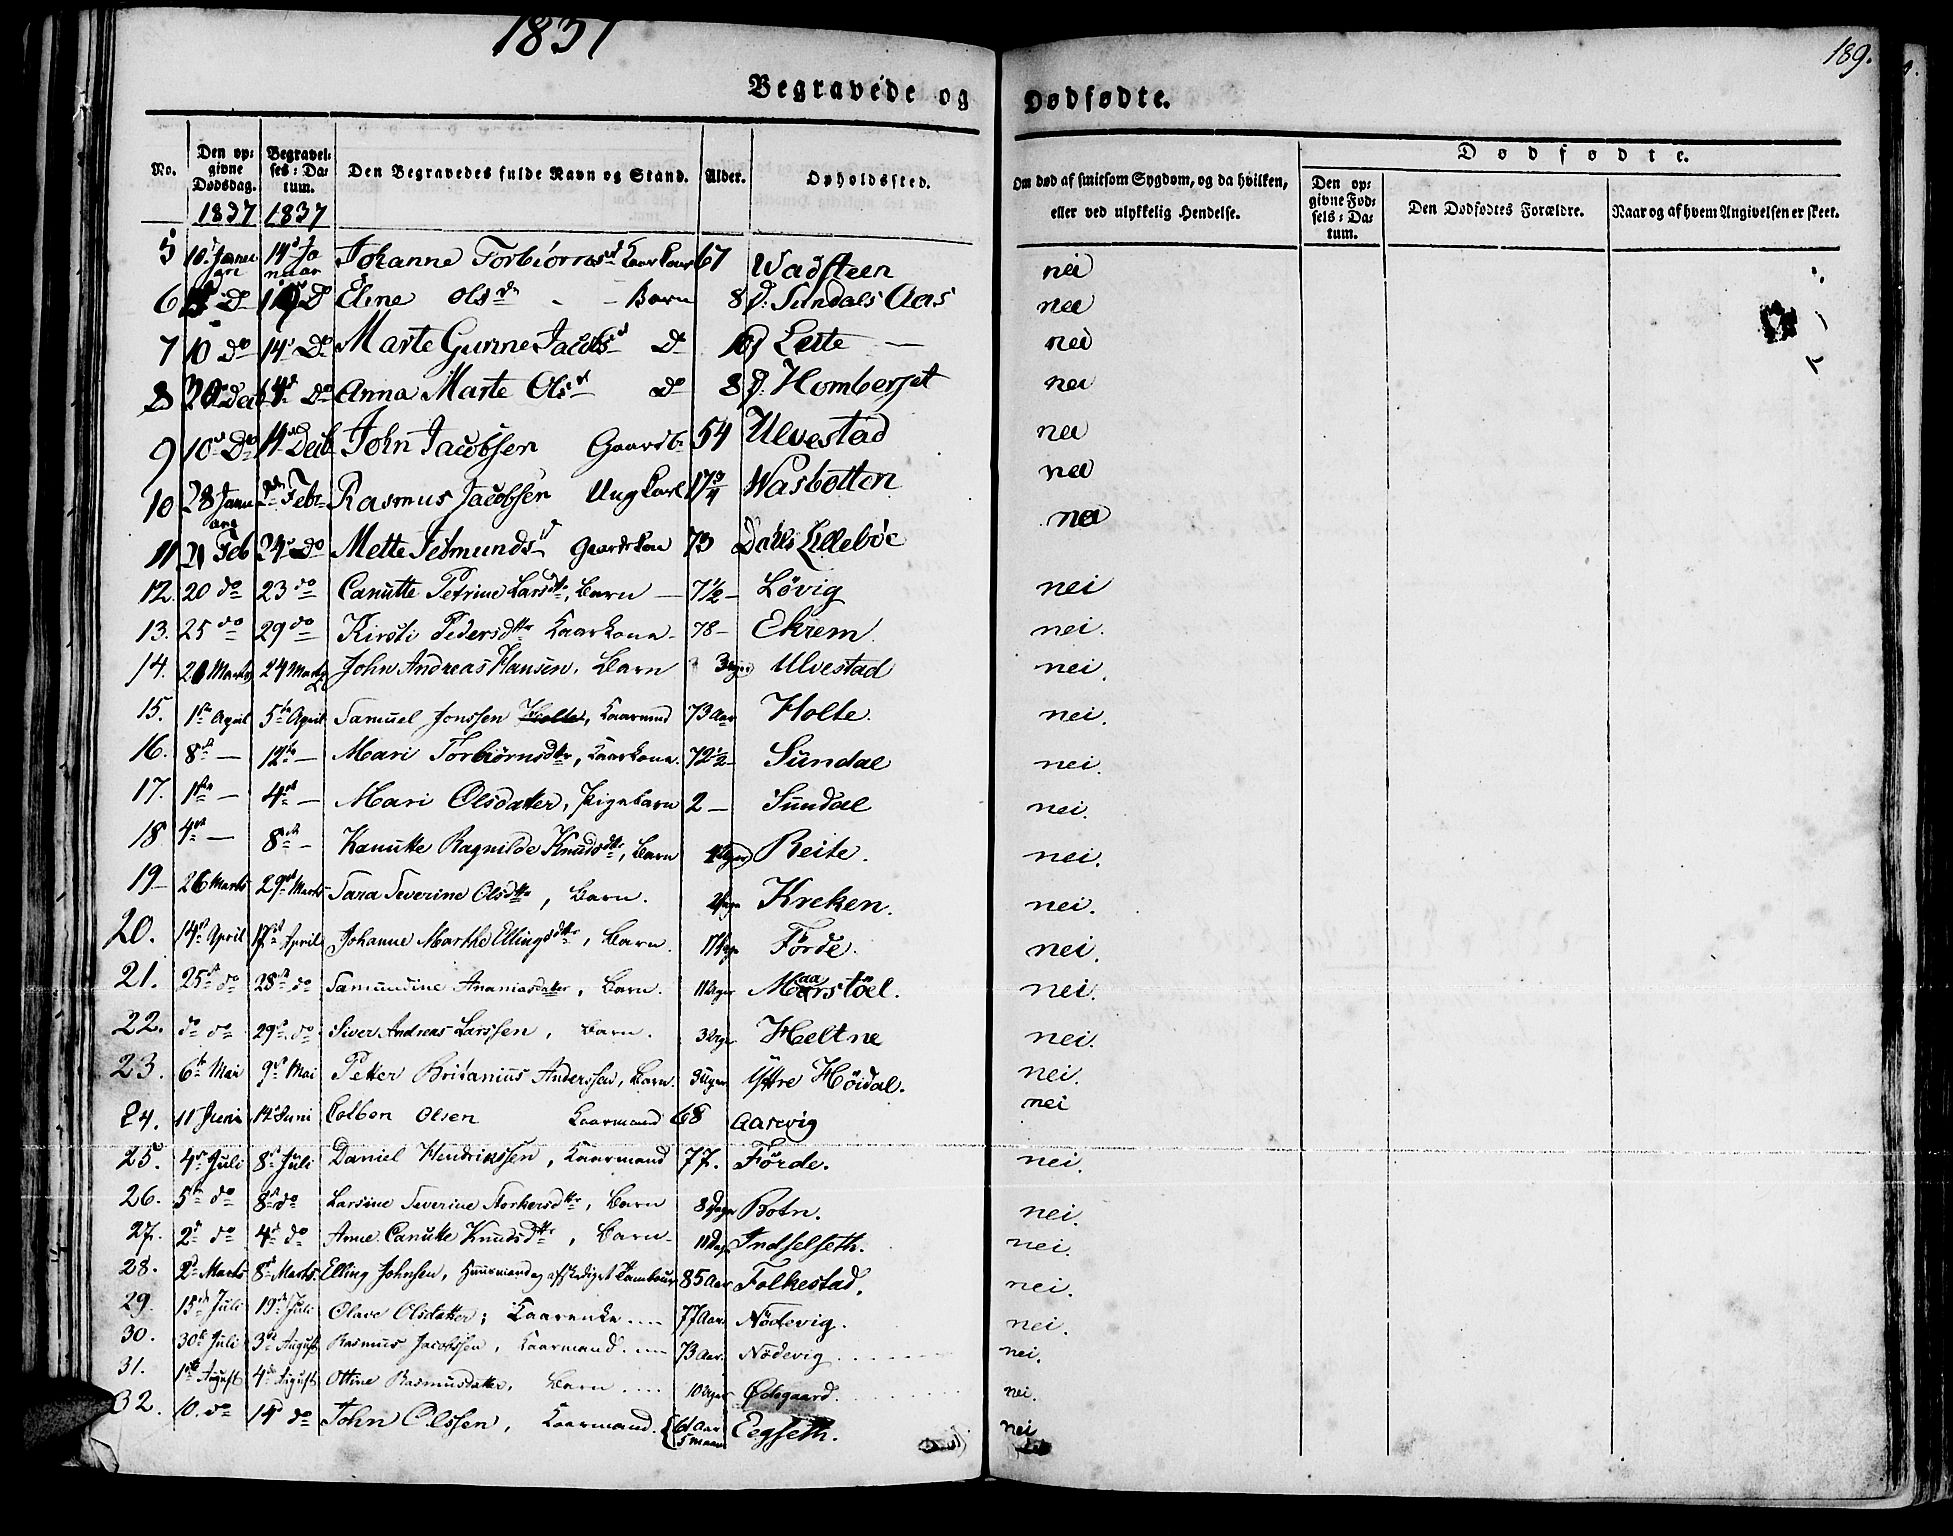 1837
189.
Begravede og Dødfødte.
No. Den opgivne Dødsdag. Begravelses-Datum. Den Begravedes fulde Navn og Stand. Alder. Opholdssted. Om død af smitsom Sygdom, og da hvilken, eller ved ulykkelig Hendelse. Dødfødte.
Den opgivne Fødsels-Datum. Den Dødfødtes Forældre. Naar og af hvem Angivelsen er skeet.
1837 1837
5 10 Januari 14 Januar Johanne Torbiørnsd Kaarkone 67 Wadsteen nei
6 Do Do Eline Olsdr - - Barn 8 d. Sundals Aas nei
7 10 Do 14 Do Marte Gurine Jacobsd Do 10 d Leite nei
8 Do Anna Marte Olsd Do 8 d. Homberset nei
9 10 Do 14 John Jacobsen Gaardb 54 Ulvestad nei
10 28 Januari 2 Febr Rasmus Jacobsen Ungkarl 17 3/4 Wasbotten nei
11 21 Feb 24 Do Mette Jetmundsd Gaardkone 73 Dahls Lillebøe nei
12. 20 do 23 do Canutte Petrine Larsdtr, Barn - 7 1/2 - Løvig nei
13. 25 do 29 do Kirsti Pedersdtr Kaarkone - 78 - Ekrem nei.
14. 20 Marts 24 Marts John Andreas Hansen, Barn 3 Uger Ulvestad nei.
15. 1ste April 5te April Samuel Jonssen Holte, Kaarmand 73 Aar Holte. nei.
16. 8de - 12te - Mari Torbiørnsdtr, Kaarkone. 72 1/2 - Sundal nei.
17. 1ste - 4de - Mari Olsdatter, Pigebarn 2 - Sundal nei.
18 4de - 8de - Kanutte Ragnilde Knudsdtr, Barn Uger Reite. nei.
19 - 26 Marts 29de Marts Sara Severine Olsdtr, Barn. Kreken. nei.
20. 14de April 17de April Johanne Marthe Ellingsdtr, Barn. Førde. nei.
21. 25de do 28de do Samundine Ananiasdatter, Barn. 11 Uger Maarstøel. nei.
22. do do 29de do Siver Andreas Larssen, Barn. 3 Uger Heltne nei.
23. 6te Mai 9de Mai Petter Britanius Anderssen, Barn. 3 Uger Yttre Høidal. nei.
24. 11 Juni Juni Colbon Olsen Kaarmand 68 Aarvig nei
25. 4de Juli 8de Juli Daniel Hendrikssen, Kaarmand 77. Førde. nei.
26. 5te do 8de do Larsine Severine Storkersdtr, Barn 8 Dage Botn. nei.
27. 2de do 4de do Anne Canutte Knudsdtr, Barn - 11 Dage Indselseth. nei.
28. 2de Marts 8de Marts Elling Johnsen, Huusmand og afskediget Tambour 85 Aar Folkestad. nei.
29. 15de Juli 19de Juli Olave Olsdatter; Kaarenke .... 77 Aar. Nødevig. nei.
30. 30te Juli 3de August Rasmus Jacobssen, Kaarmand. .... 73 Aar. Nødevig ...... nei.
31. 1ste August 4de August Ottine Rasmusdatter, Barn .... 10 Uger Ødegaard. ...... nei.
32. 10. do 14 do John Olssen, Kaarmand. {61 Aar 5 Maan Eegseth. nei